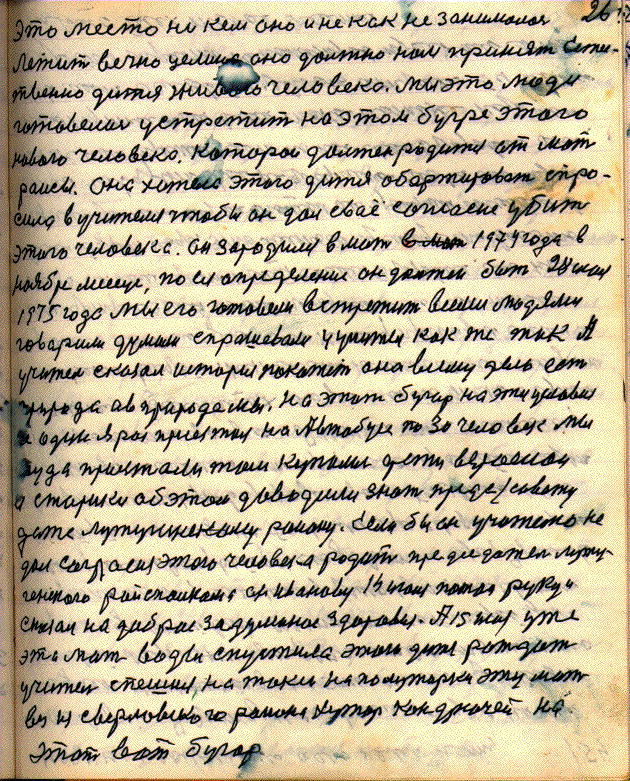 26
Это место не кем оно и не как не занималось
Летит вечно целина оно должно нам принят
твенно дитя живого человека. мы это люди
готовелись устретит на этом бугре этого
нового человека. Которой должен родится от мат
раисы. Она хотела этого дитя спро-
сила в учителя чтобы он дал своё согласие убит
этого человека. он зародился в мат 1974 года в
ноябре месеце, по ея определение он должен быт 28
1975 года Мы его готовели встретит всеми людями
говарили думали спрашевали у учителя как же так А
учител сказал история покажет она всему дело ест
природа а в природе мы. На этот бугор на эти условия
не один я раз приезжал на Автобусе по 30 человек мы
туда приежали там купалис дети взрослои
и старики об этом доводили знат пред с/совету
даже лутугинскому району. Если бы он учител не
дал согласия этого человека родит председател луту-
генского
сказал на доброе задуманое здоровия. А 15 мая уже
эта мат воды спустила этого дитя рождат
учител спешил, на такси на полуторки эту мат
вез из сверловского района хутор кондрючей на
этот вот бугор